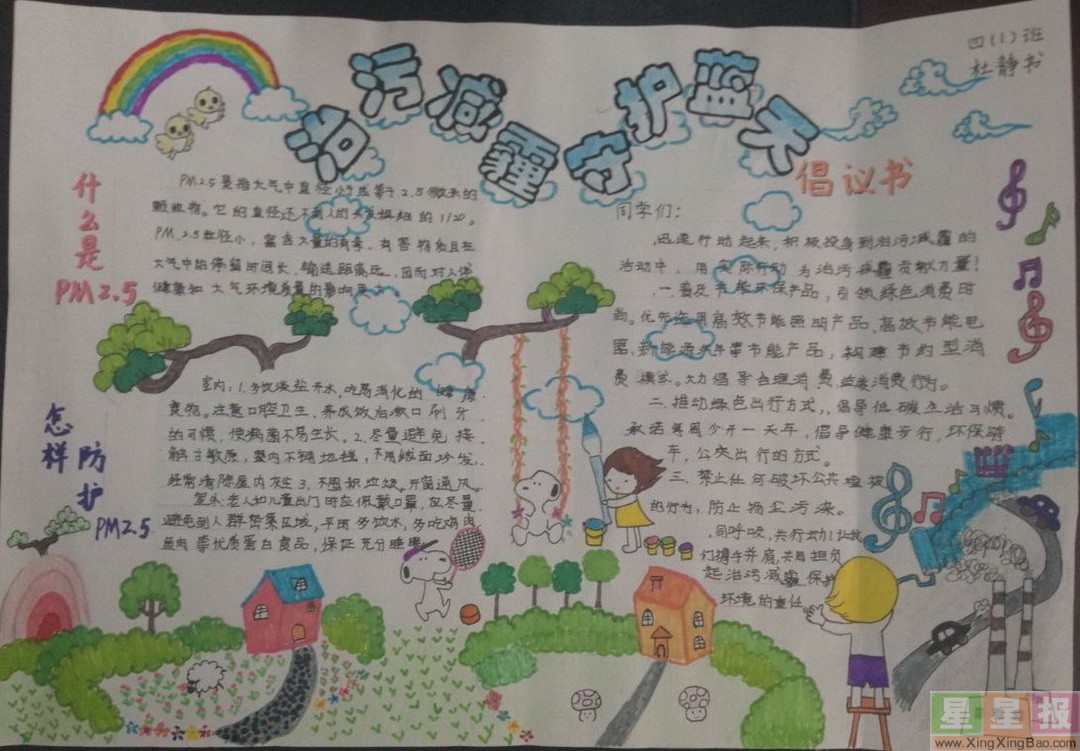 四(1)班
杜静书
治污减霾守护蓝天
什么是
PM2.5
PM2.5是指大气中直径小于或等于2.5微米的
颗粒物。它的直径还不到人的头发丝粗细的1/20。
PM2.5粒径小,富含大量的有毒、有害物质且在
大气中的停留时间长、输送距离远,因而对人体
健康和大气环境质量的影响更大
怎样
防护
PM2.5
室内:1.多饮淡盐开水,吃易消化的健康
食物。注意口腔卫生,养成饭后漱口刷牙
的习惯,使病菌不易生长。2.尽量避免接
触过敏原,室内不铺地毯,不用绒面沙发,
经常清除屋内灰尘3、不囤积垃圾。开窗通风。
室外:老人和儿童出门时应佩戴口罩,应尽量
避免到人群密集区域,平时多饮水,多吃鸡肉
鱼肉等优质蛋白食品,保证充分睡眠
倡议书
同学们:
迅速行动起来,积极投身到治污减霾的
活动中,用实际行动为治污减霾贡献力量!
一.普及节能环保产品,引领绿色消费时
尚。优先选用高效节能照明产品、高效节能电
器、新能源汽车等节能产品,构建节约型消
费模式。大力倡导合理消费、适度消费
二.推动绿色出行方式,倡导低碳生活习惯。
承诺每周少开一天车,倡导健康步行,环保骑
车,公交出行的方式。
三.禁止任何破坏公共植被
的行为,防止扬尘污染。
同呼吸,共行动!让我
们携手并肩,共同担负
起治污减霾、保护
环境的重任
星星报
www.XingXingBao.com